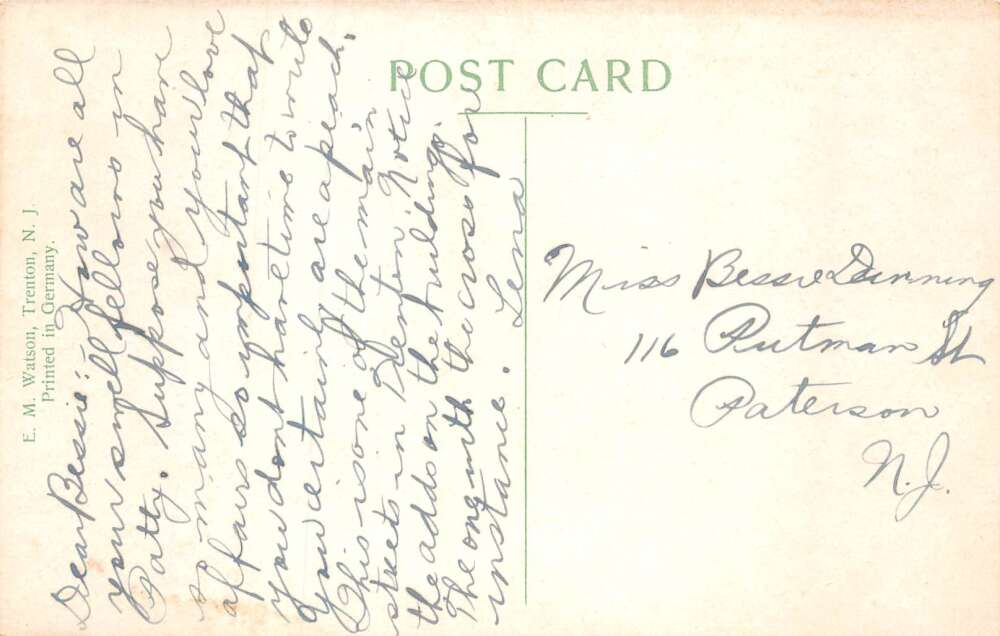 POST CARD
E. M. Watson, Trenton, N. J.
Printed in Germany.
Dear Bessie:- How are all
your swell fellows in
Patty. Suppose you have
so many and your love
affairs so important that
you dont have time to write
you certainly are a peach.
This is one of the main
streets in Trenton. Notice
the adds on the buildings.
The one with the cross for
instance. Lena
Miss Bessie Dinning
116 Putman St
Paterson
N.J.